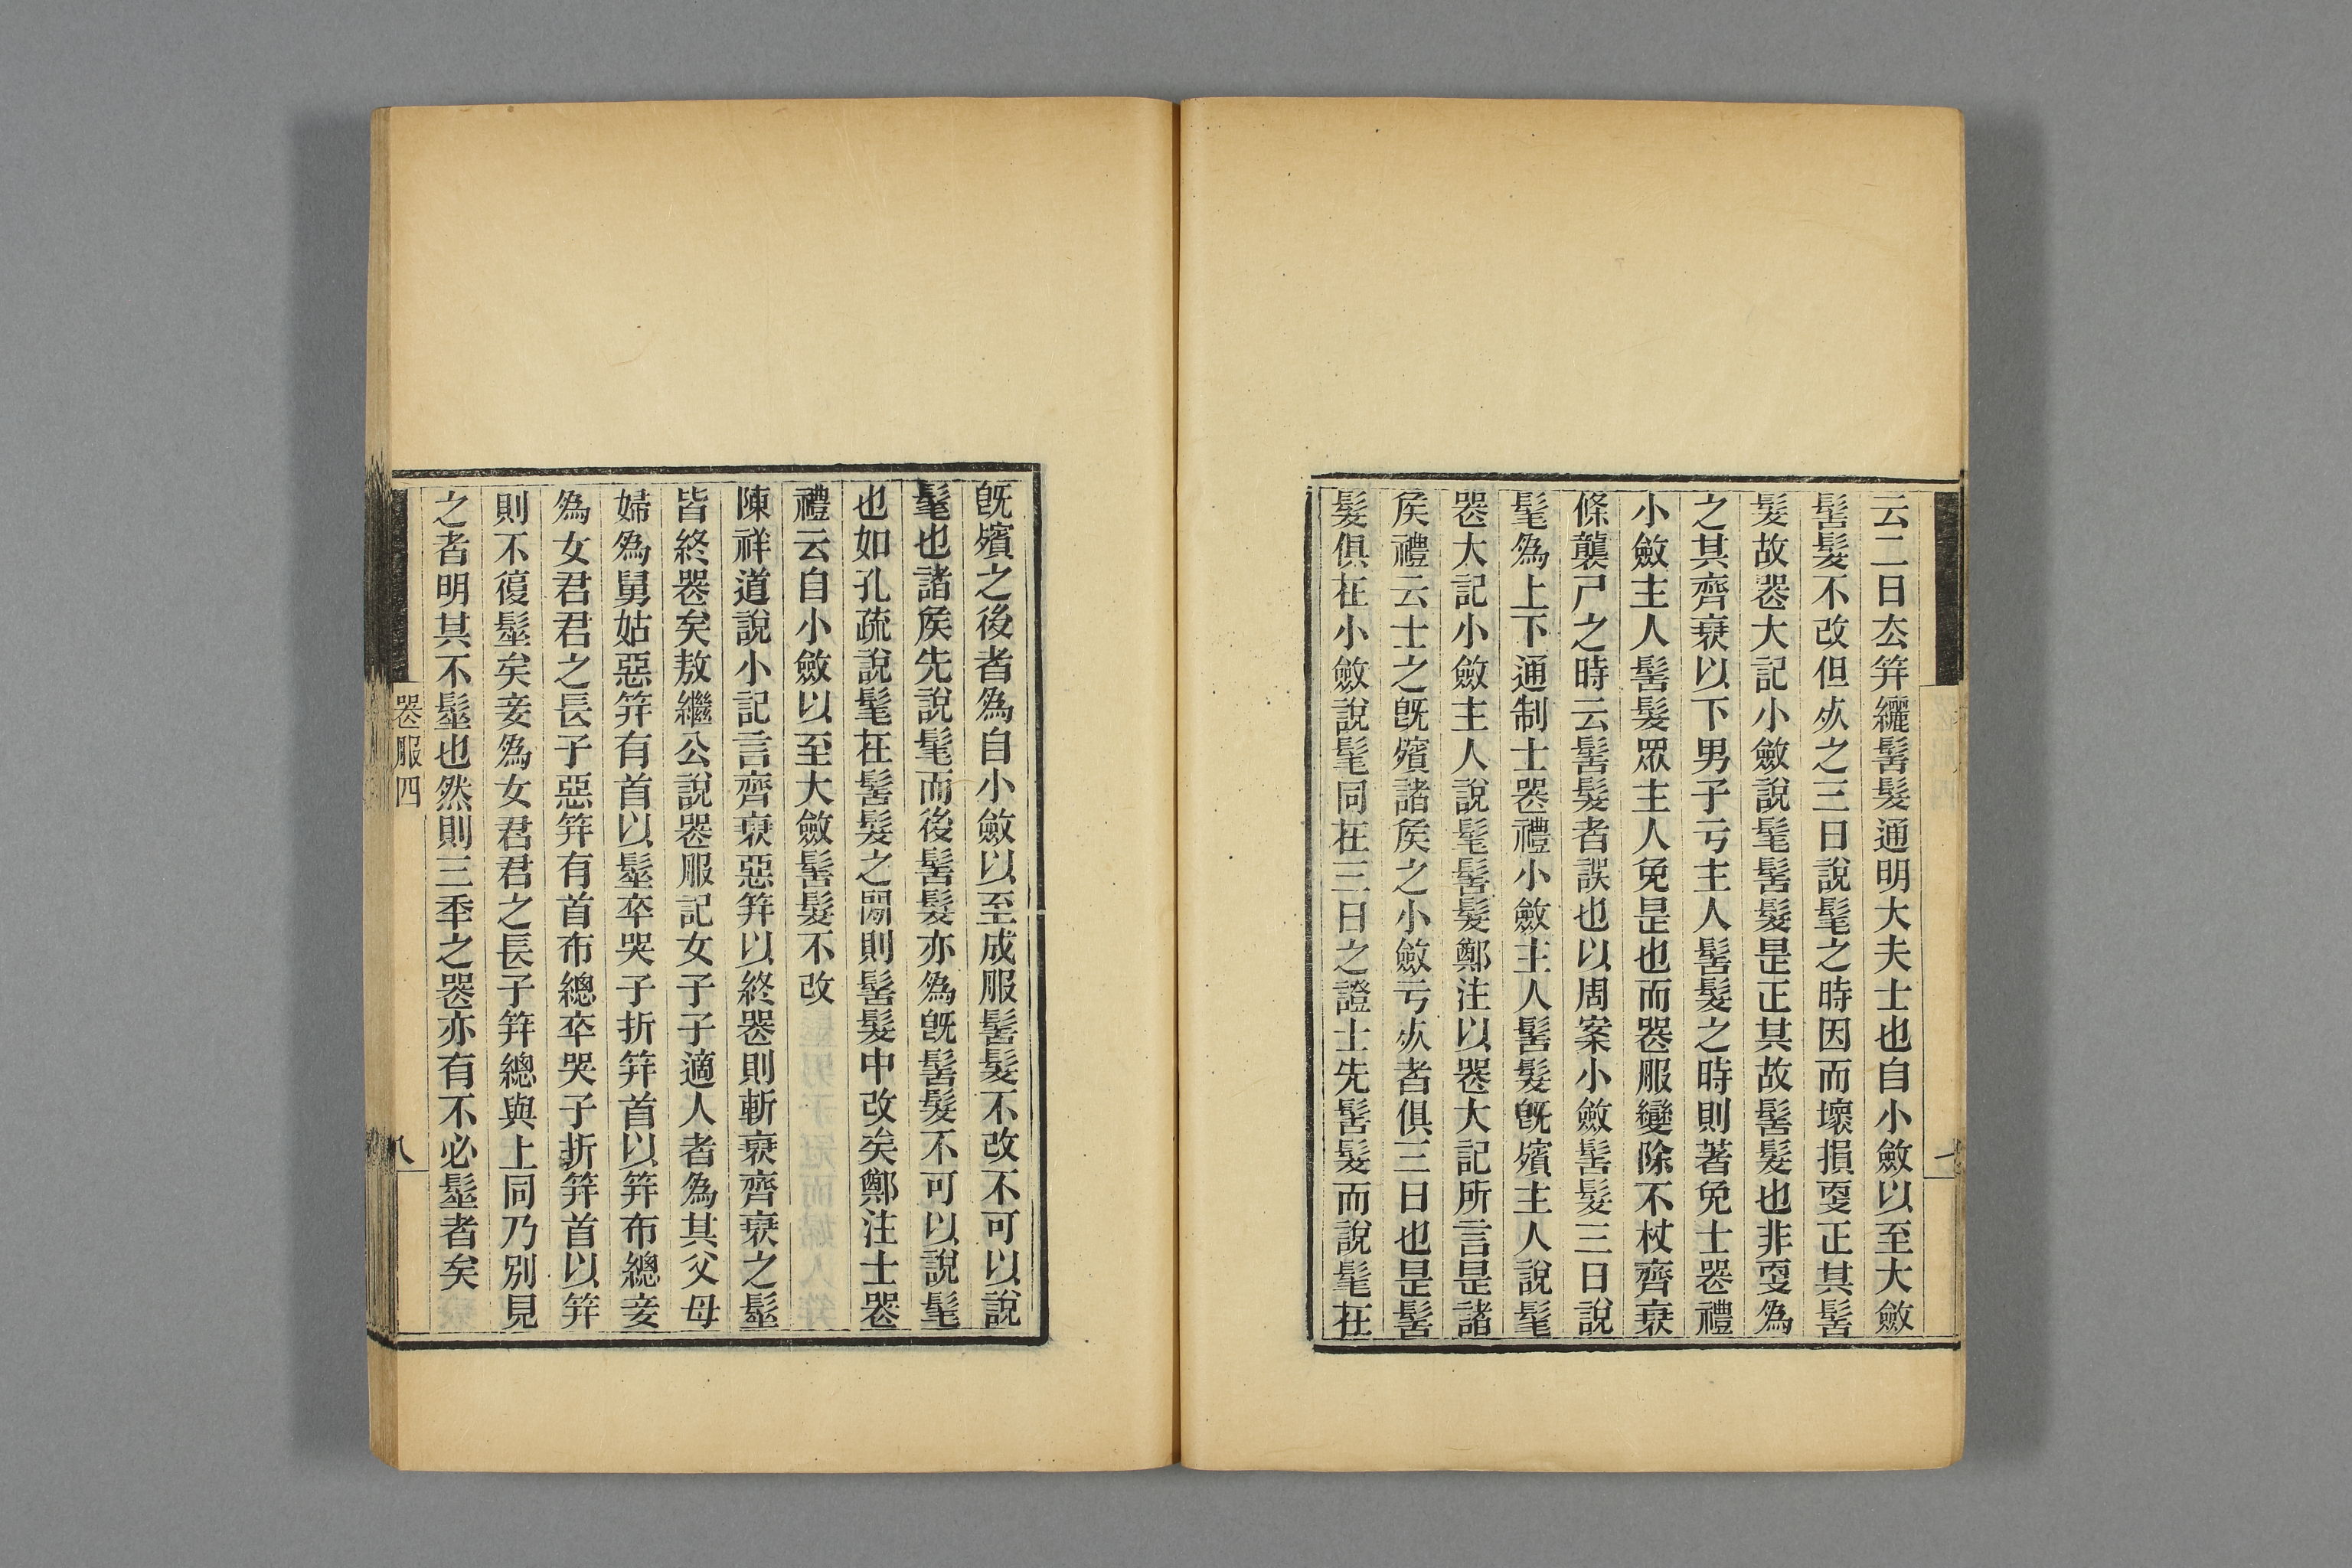 云二日厺筓纚髻髮通明大夫士也自小斂以至大斂
髻髮不改但㚈之三日說髦之時因而壞損㪅正其髻
髮故喪大記小斂說髦髻髮昰正其故髻髮也非㪅爲
之其齊衰以下男子亏主人髻髮之時則著免士喪禮
小斂主人髻髮眾主人免昰也而喪服變除不杖齊衰
條襲尸之時云髻髮者誤也以周案小斂髻髮三日說
髦爲上下通制士喪禮小斂主人髻髮旣殯主人說髦
喪大記小斂主人說髦髻髮鄭注以喪大記所言昰諸
矦禮云士之旣殯諸矦之小斂亏㚈者俱三日也昰髻
髮俱在小斂說髦同在三日之證士先髻髮而說髦在
七
旣殯之後者爲自小斂以至成服髻髮不改不可以說
髦也諸矦先說髦而後髻髮亦爲旣髻髮不可以說髦
也如孔疏說髦在髻髮之閒則髻髮中改矣鄭注士喪
禮云自小斂以至大斂髻髮不改
陳祥道說小記言齊衰惡筓以終喪則斬衰齊衰之髽
皆終喪矣敖繼公說喪服記女子子適人者爲其父母
婦爲舅姑惡筓有首以髽卒哭子折筓首以筓布總妾
爲女君君之長子惡筓有首布總卒哭子折筓首以筓
則不復髽矣妾爲女君君之長子筓總與上同乃別見
之者明其不髽也然則三秊之喪亦有不必髽者矣
喪服四
八